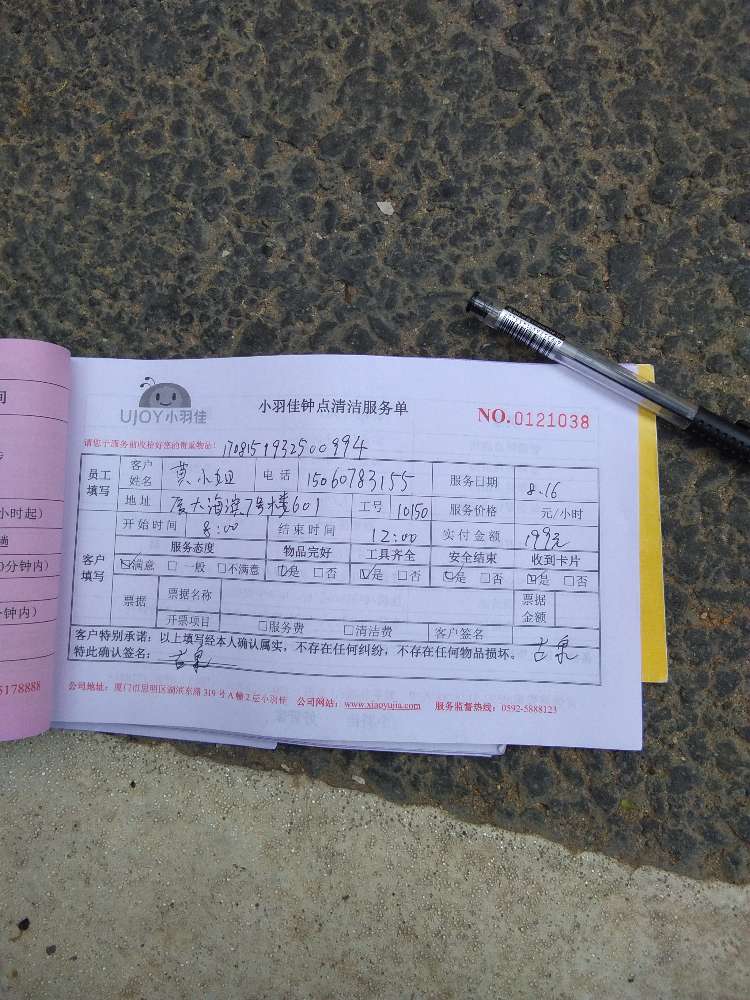 间
小时起)
趟
0分钟内)
钟内)
5178888
UJOY小羽佳
小羽佳钟点清洁服务单
NO.0121038
请您于服务前收拾好您的贵重物品!
1708151932500994
员工填写 客户姓名 莫小姐 电话 15060783155 服务日期 8.16
地址 厦大海滨7号楼601 工号 10150 服务价格 元/小时
客户填写 开始时间 8:00 结束时间 12:00 实付金额 199元
服务态度 物品完好 工具齐全 安全结束 收到卡片
☑满意 □一般 □不满意 ☑是 □否 ☑是 □否 ☑是 □否 ☑是 □否
票据 票据名称 票据金额
开票项目 □服务费 □清洁费 客户签名
客户特别承诺:以上填写经本人确认属实,不存在任何纠纷,不存在任何物品损坏。
特此确认签名:
公司地址:厦门市思明区湖滨东路319号A幢2层小羽佳 公司网站:www.xiaoyujia.com 服务监督热线:0592-5888123